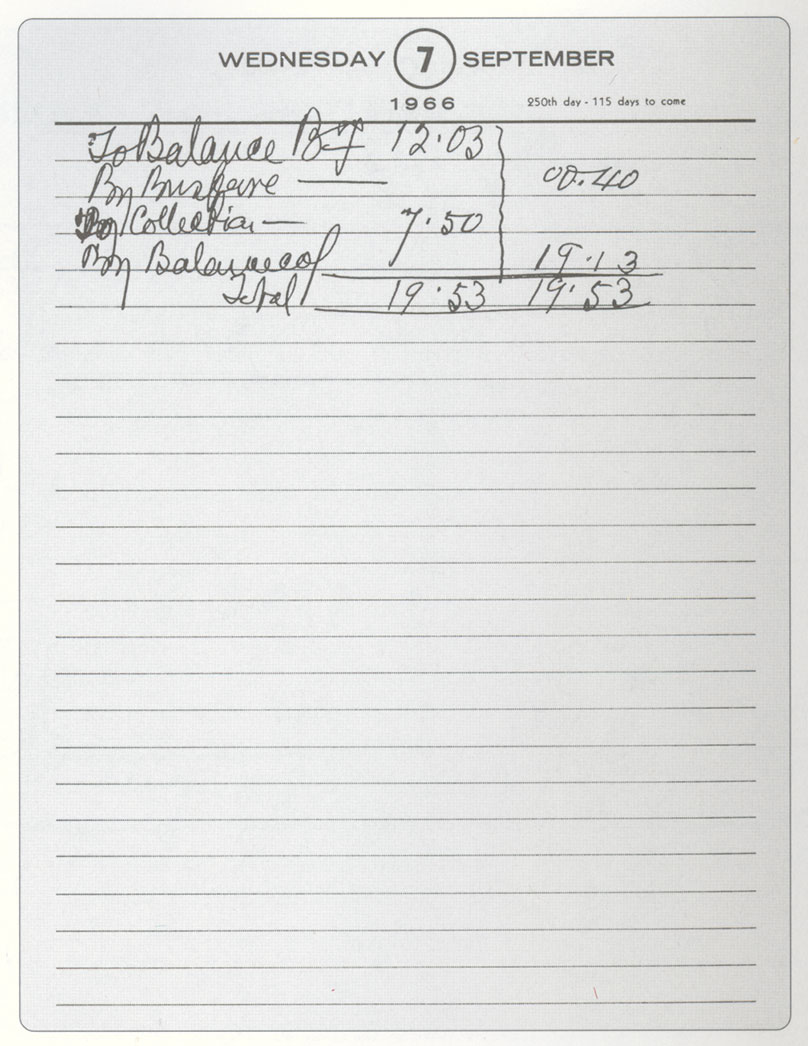 WEDNESDAY 7 SEPTEMBER
1966 250th day - 115 days to come
To Balance BF 12.03
By Busfare — 00.40
By Collection — 7.50
By Balance cf 19.13
Total 19.53 19.53